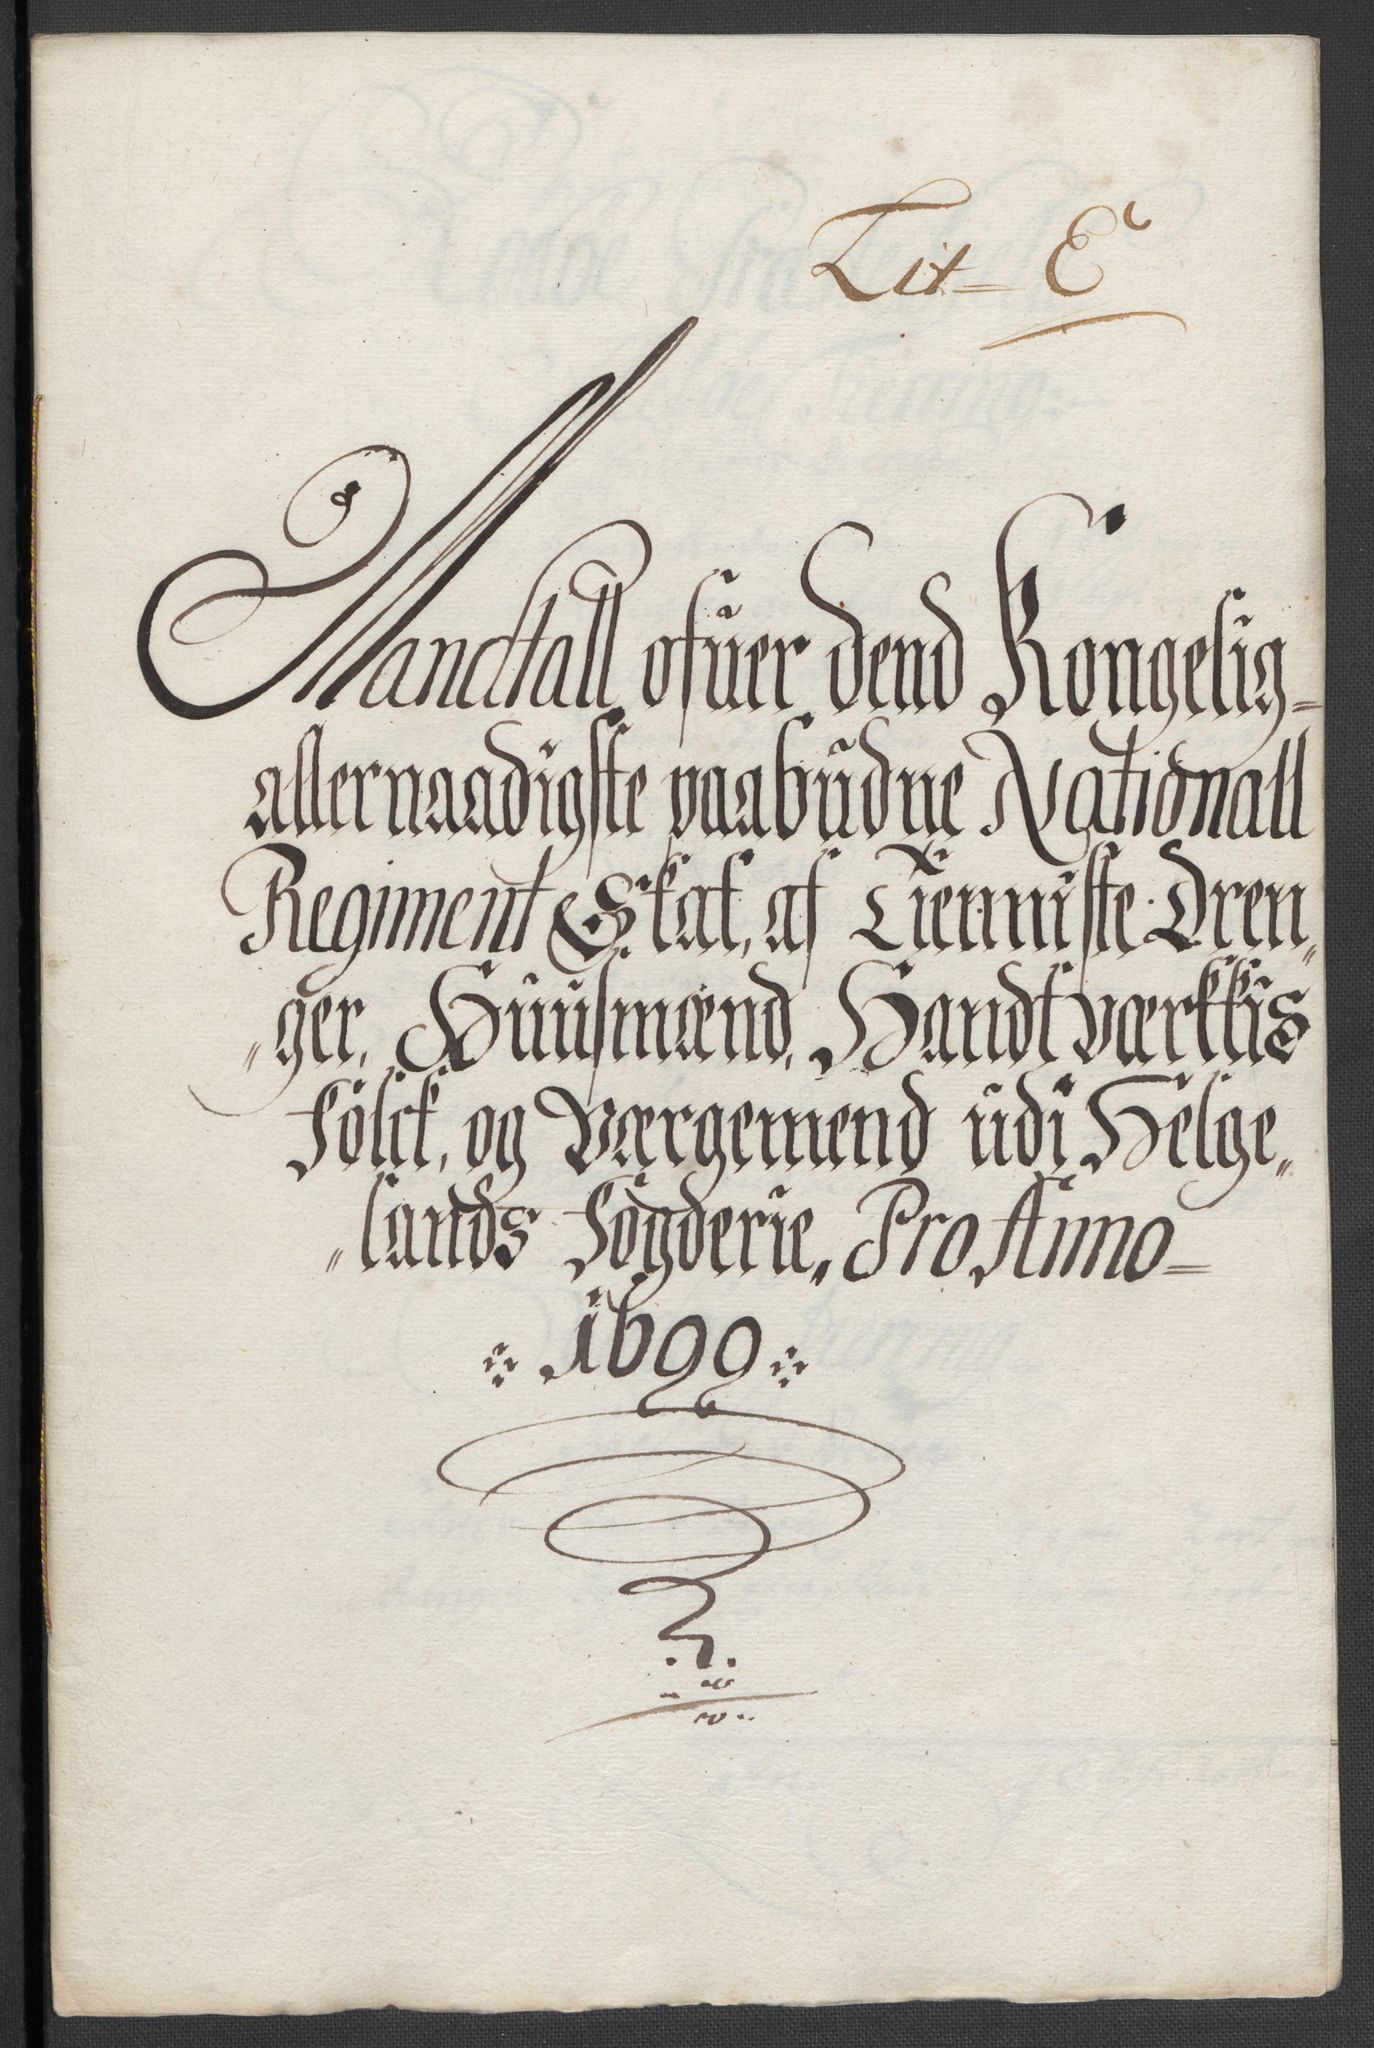 Lit= E
Mandtall ofuer dend Kongelig=
allernaadigste paabudne Nationall
Regiment Skat, af Tienniste Dren„
„ger, Huusmænd, Handtværkkis
folck, og Værgemend udi Helge„
„lands Fögderie, Pro Anno=
1699